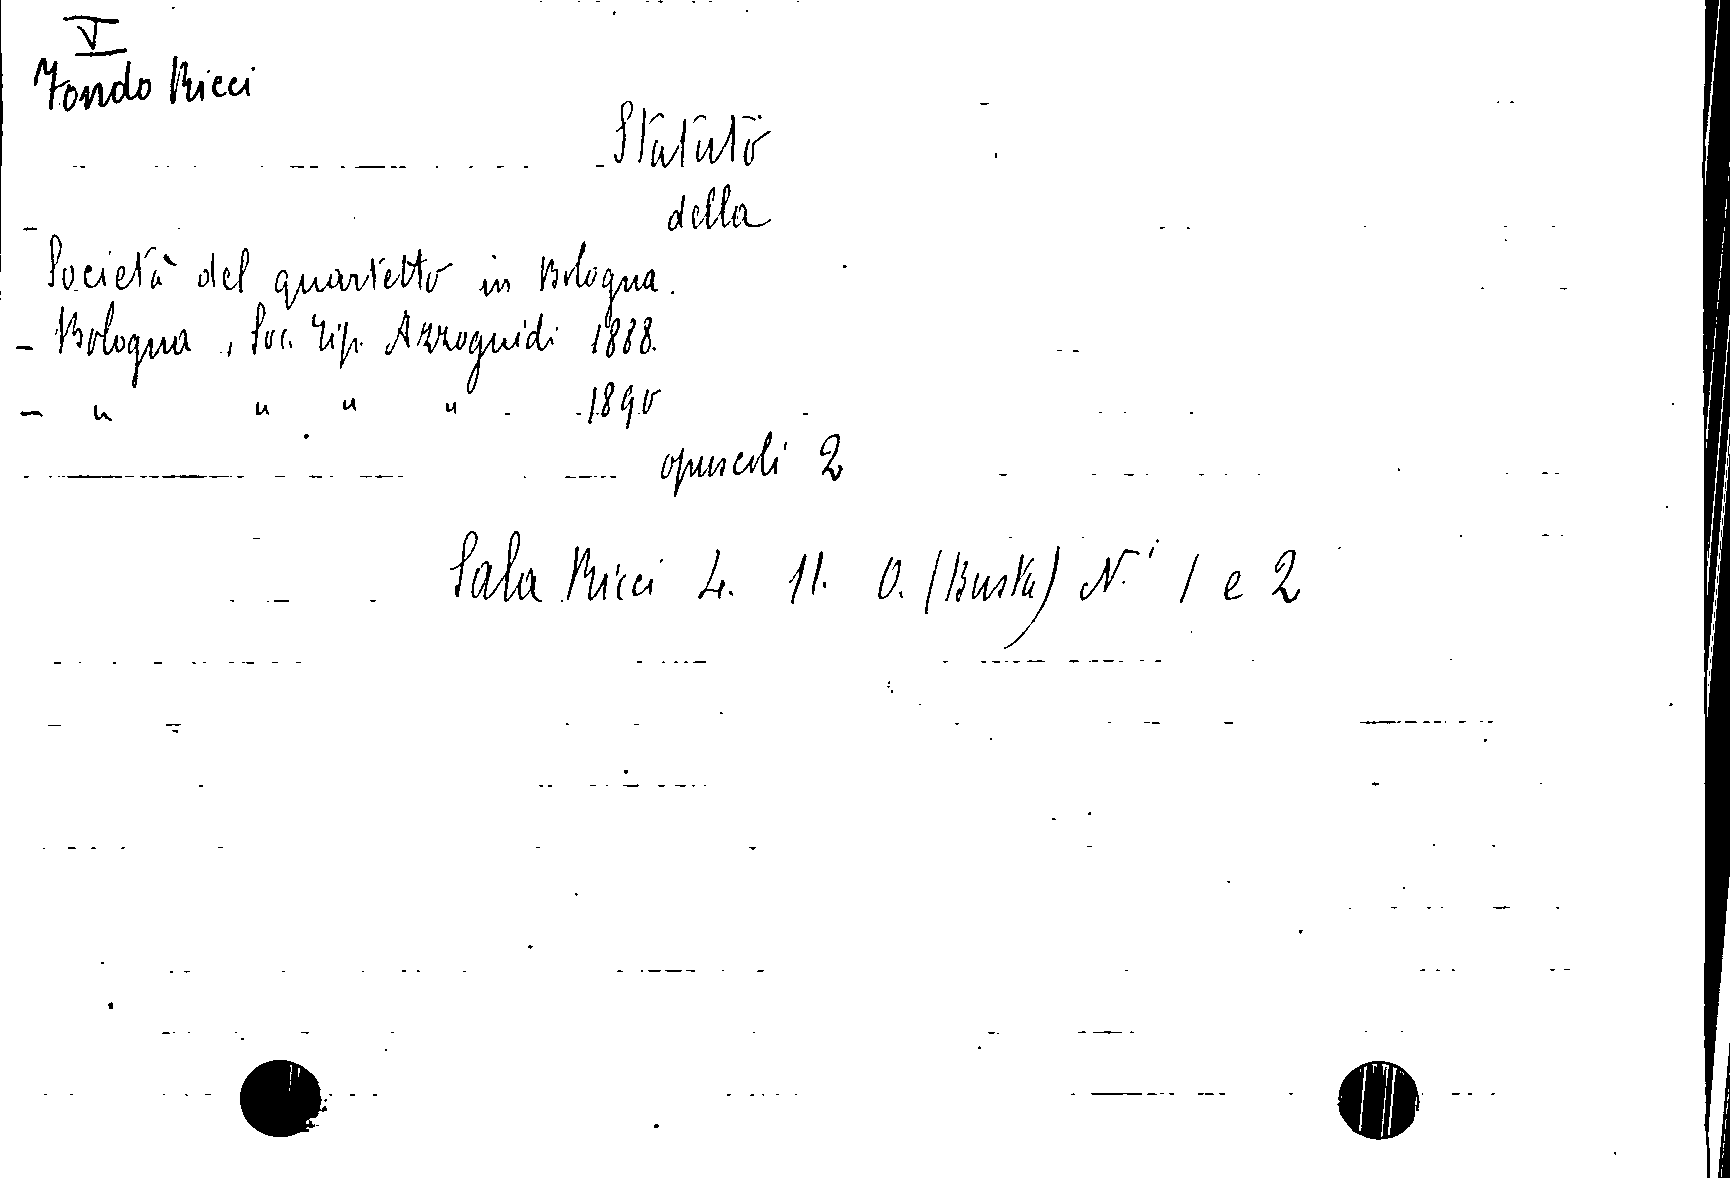 V
Fondo Ricci
Statuto
della
Società del quartetto in Bologna.
- Bologna, Soc. Tip. Azzoguidi 1888.
- " " " " 1890
opuscoli 2
Sala Ricci 4. 11. O. (Busta) N.i 1 e 2